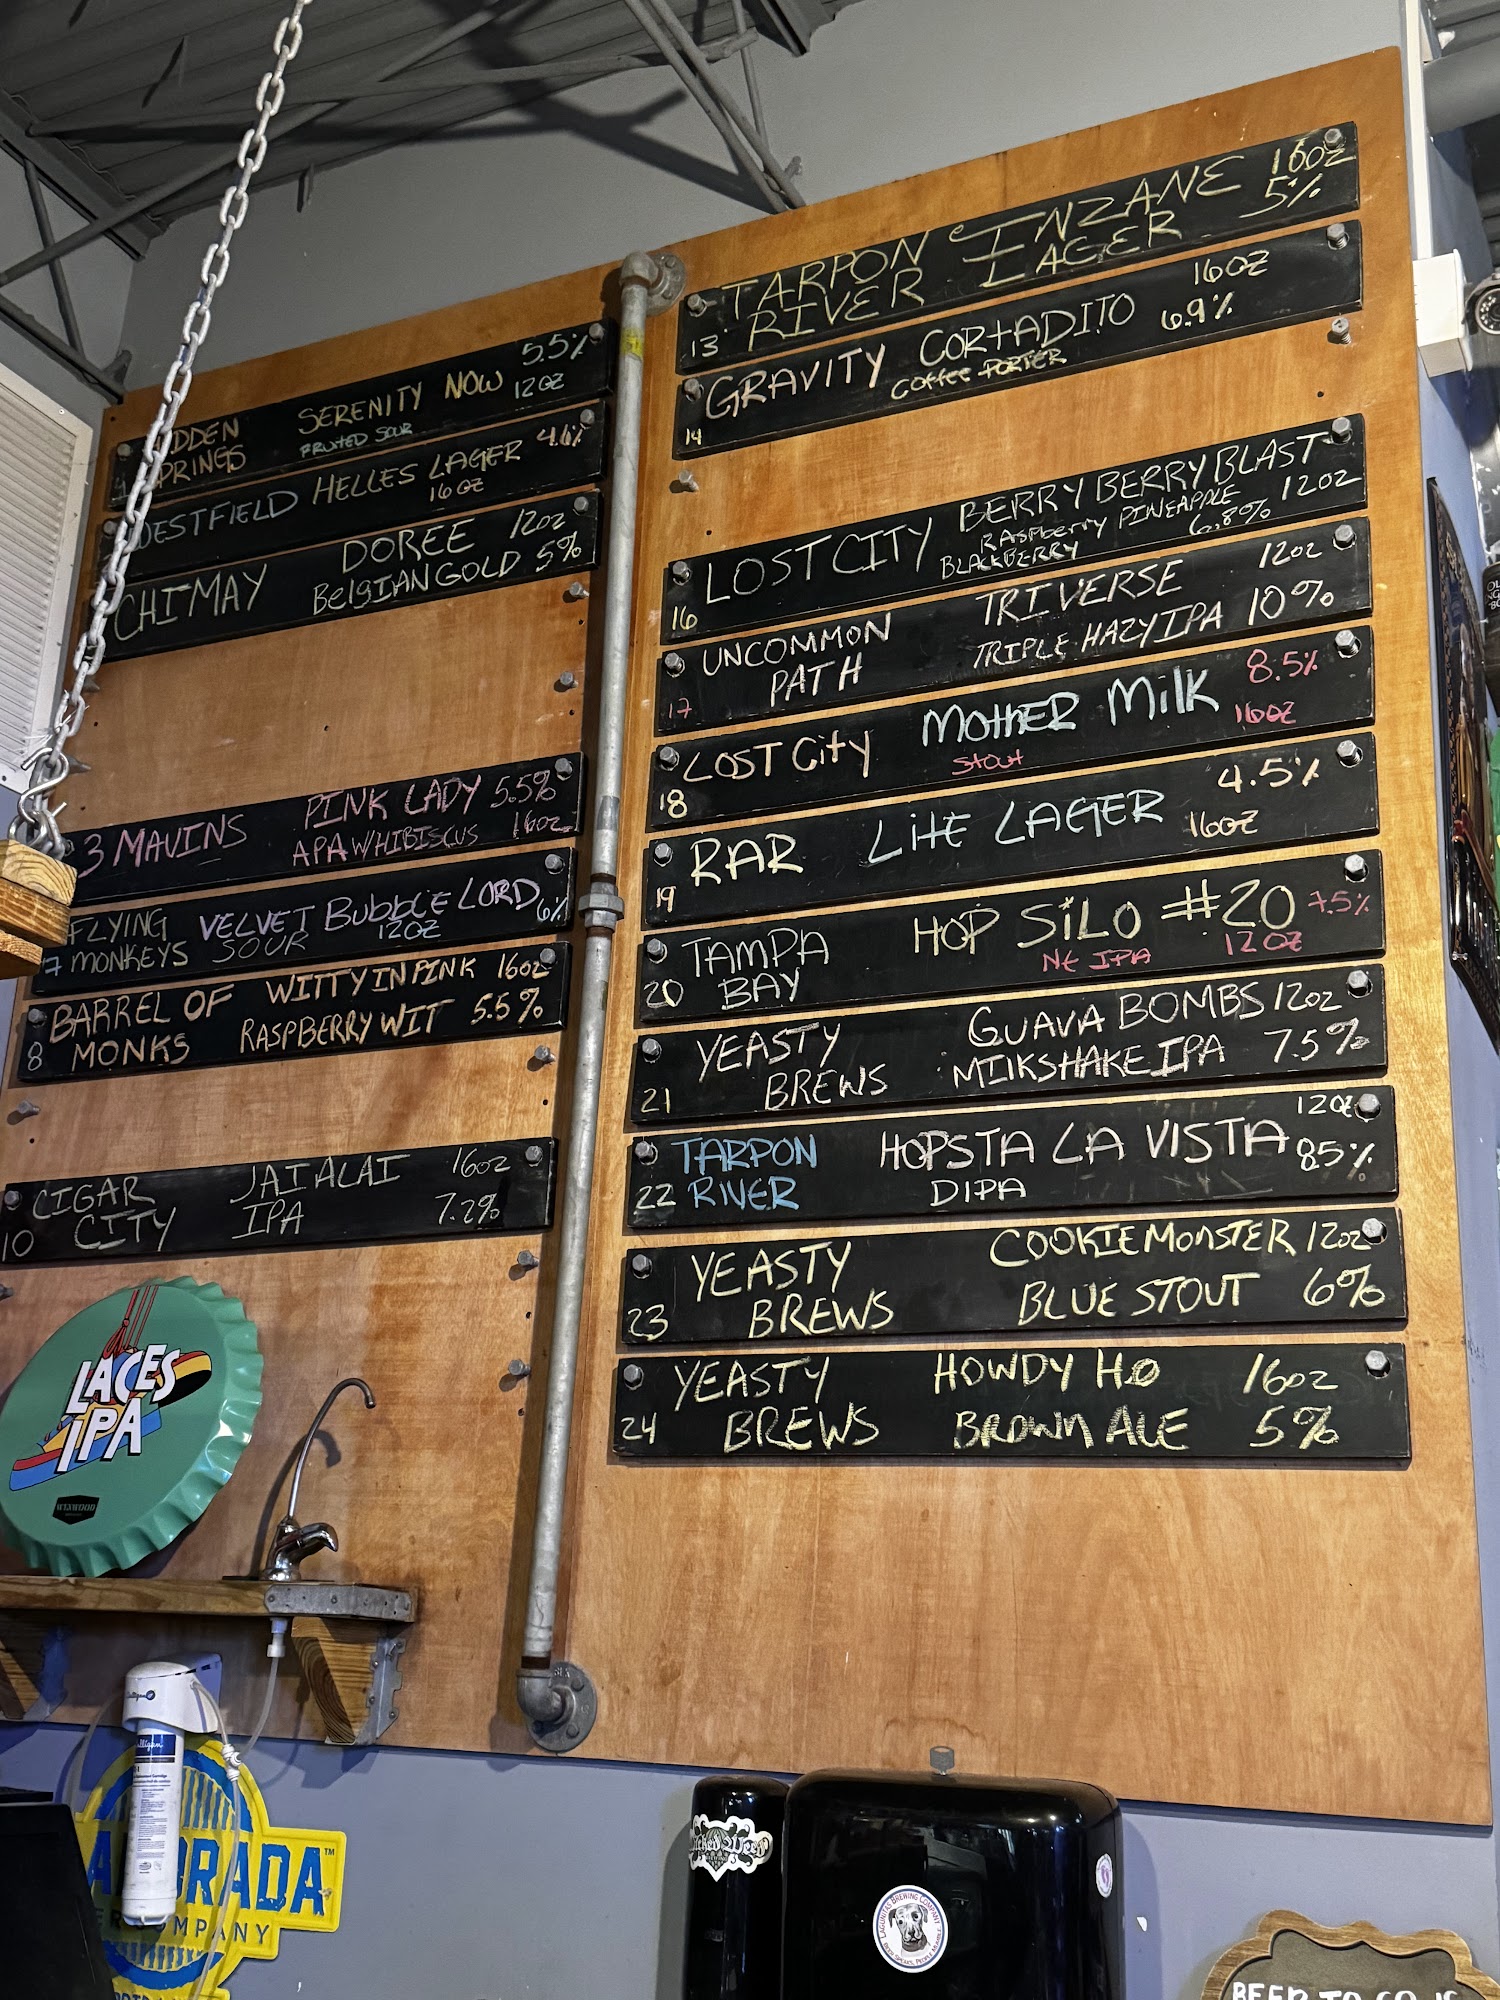 SERENITY NOW 5.5%
FRUITED SOUR 12OZ
HELLES LAGER 4.6%
16OZ
CHIMAY DOREE 12OZ
BELGIAN GOLD 5%
3 MAVINS PINK LADY 5.5%
APA W/HIBISCUS 16OZ
FLYING VELVET BUBBLE LORD 6%
7 MONKEYS SOUR 12OZ
BARREL OF WITTY IN PINK 16OZ
8 MONKS RASPBERRY WIT 5.5%
CIGAR JAI ALAI 16OZ
10 CITY IPA 7.2%
TARPON INZANE 16OZ
13 RIVER LAGER 5%
GRAVITY CORTADITO 16OZ
14 COFFEE PORTER 6.9%
LOST CITY BERRY BERRY BLAST
RASPBERRY PINEAPPLE 12OZ
16 BLACKBERRY 6.8%
UNCOMMON TRIVERSE 12OZ
17 PATH TRIPLE HAZY IPA 10%
LOST CITY MOTHER MILK 8.5%
18 STOUT 16OZ
RAR LITE LAGER 4.5%
19 16OZ
TAMPA HOP SILO #20 7.5%
20 BAY NE IPA 12OZ
YEASTY GUAVA BOMBS 12OZ
21 BREWS MILKSHAKE IPA 7.5%
TARPON HOPSTA LA VISTA 12OZ
22 RIVER DIPA 8.5%
YEASTY COOKIE MONSTER 12OZ
23 BREWS BLUE STOUT 6%
YEASTY HOWDY HO 16OZ
24 BREWS BROWN ALE 5%
LACES
IPA
WYNWOOD
Culligan
LAGUNITAS BREWING COMPANY
BEER SPEAKS, PEOPLE MUMBLE
BEER TO GO